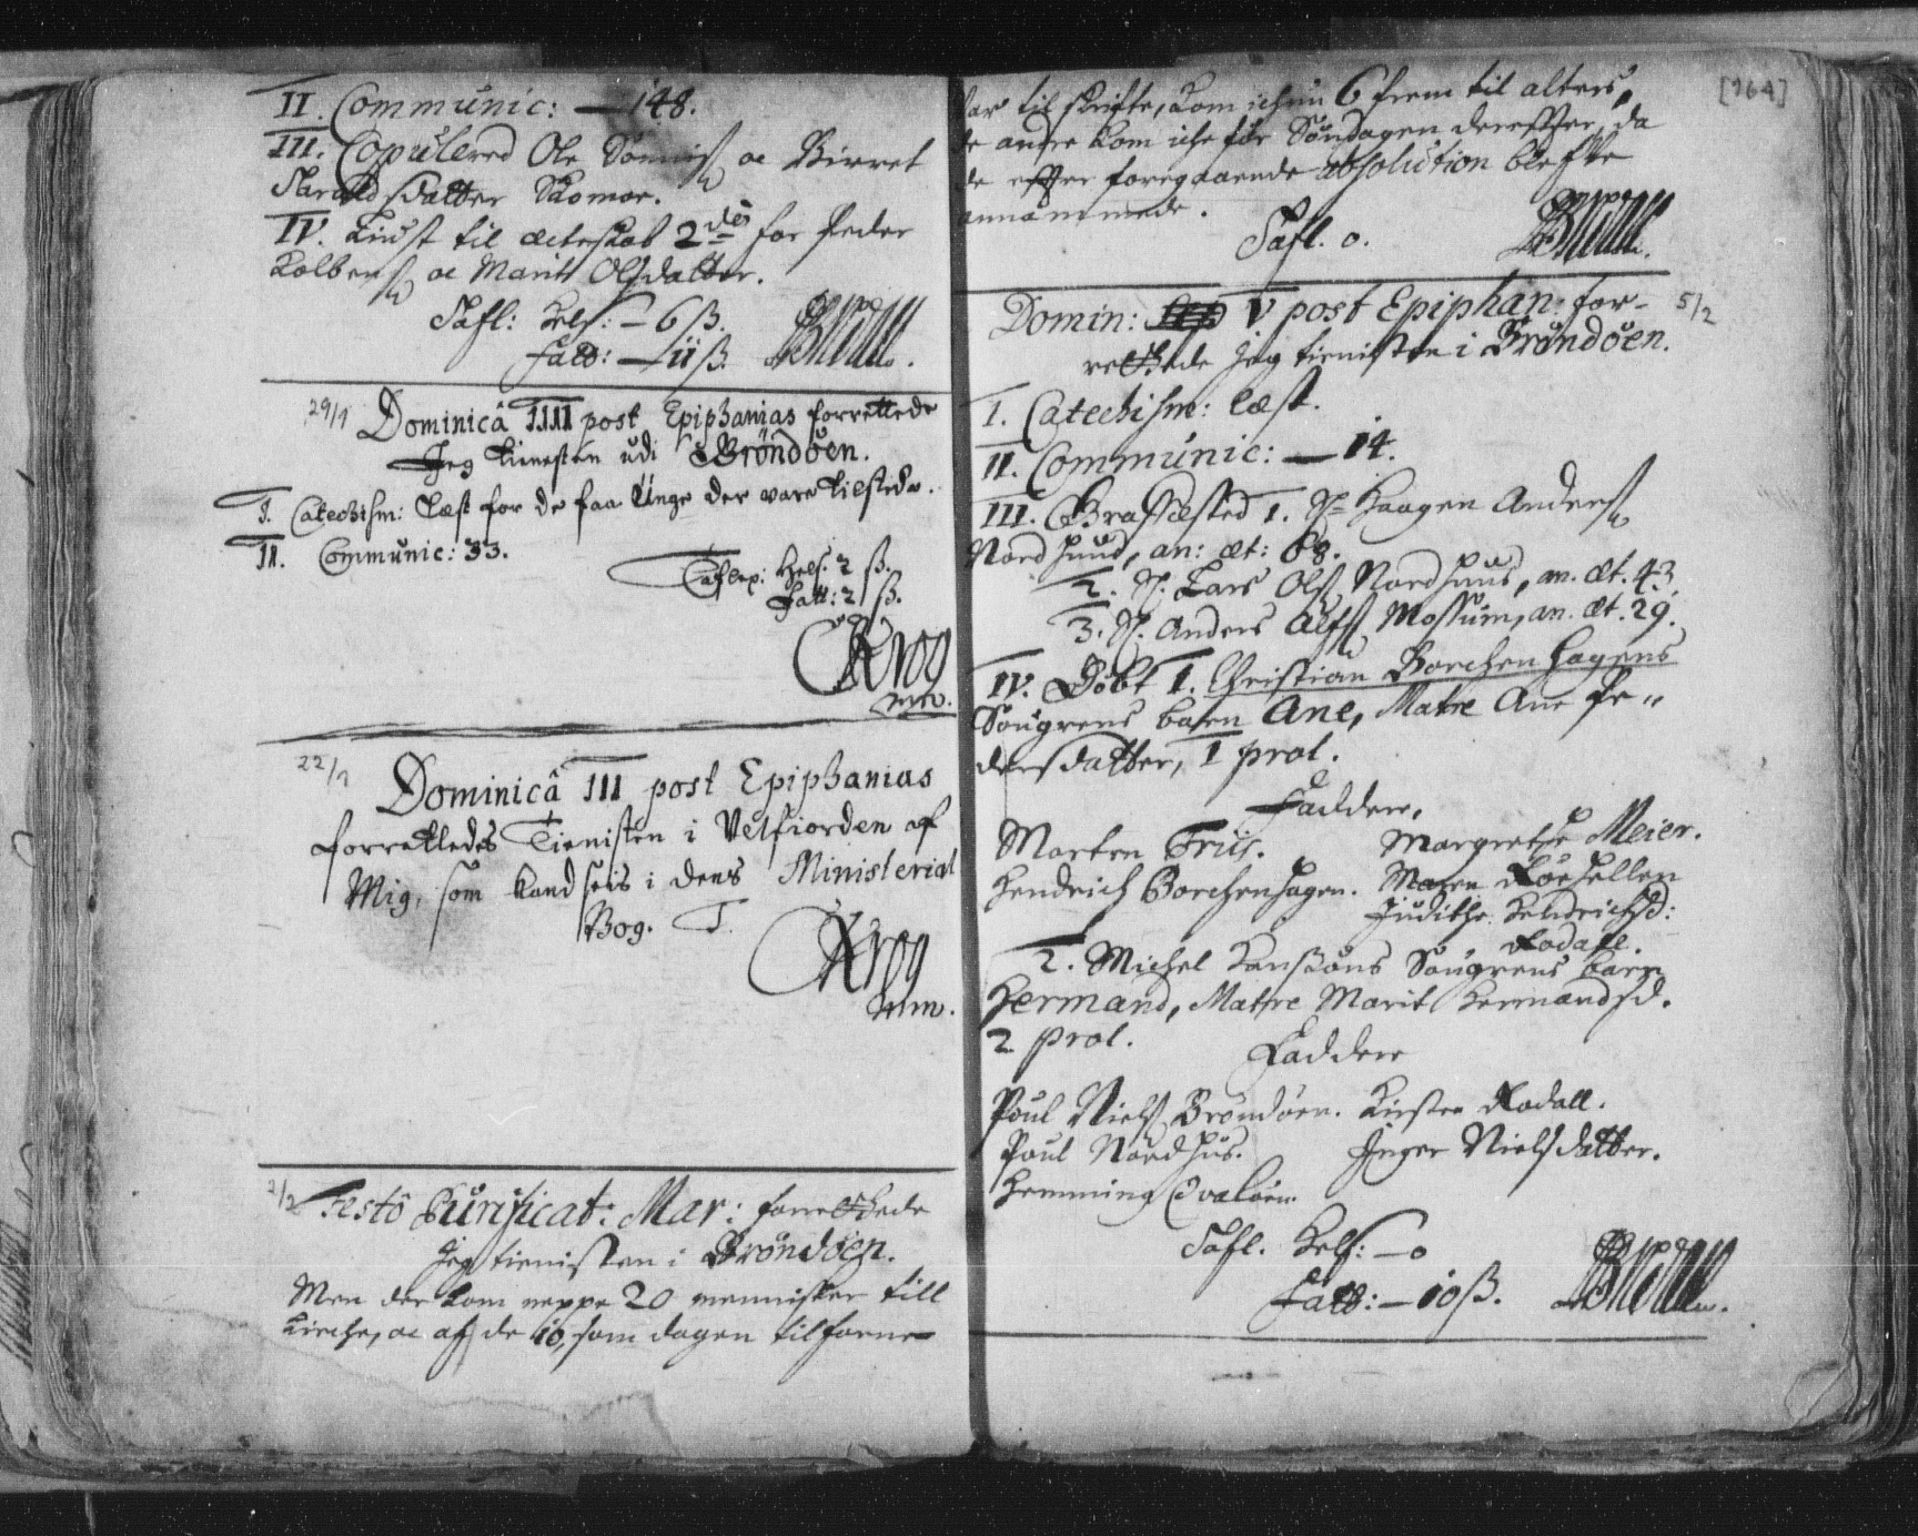 II. Communic: — 148.
III. Copulered Ole Sønnis oc Birret
Haraldsdatter Skomoe.
IV. Liust til ecteskab 2des for Peder
Kolbens oc Maritt Olsdatter.
Tafl: Kels: — 6 ß.
Fatt: — 11 ß.
29/1 Dominicâ IIII post Epiphanias forrettede
Jeg Tienesten udi Brøndøen.
I. Catechism: læst for de faa Unge der vare tilstede.
II. Communic: 33.
Kels: 2 ß.
Fatt: 2 ß.
Krog
22/1 Dominicâ III post Epiphanias
forrettedes Tienisten i Velfiorden af
Mig, som kand sees i dens Ministerial
Bog.
Krog
2/2 Festo Purificat: Mar: forrettede
Jeg tienisten i Brøndøen.
Men der kom neppe 20 mennisker till
Kirche, oc af de 10, som dagen tilforne
[164]
var til skrifte, kom ichun 6 frem til alters,
de andre kom iche før Søndagen derefter, da
de efter foregaaende absolution blefve
annammede.
Tafl. 0.
Domin: V post Epiphan: for- 5/2
rettede Jeg tienisten i Brøndøen.
I. Catechism: læst.
II. Communic: — 14.
III. Græssested 1. Sl. Haagen Anders
Nordhuus, an: æt: 68.
2. Sl. Lars Ols Nordhuus, an. æt. 43.
3. Sl. Anders Alfs Mossum, an. æt. 29.
IV. Døbt 1. Christian Borchenhagens
Søugrens barn Ane, Matre Ane Pe-
dersdatter, 1 prol.
Faddere,
Morten Friis. Margrethe Meier.
Hendrich Borchenhagen. Maren
Judithe Hendrichsd:
Rodahl.
2. Michel Søugrens barn
Hermand, Matre Marit Hermandsd.
2 prol.
Faddere
Poul Niels Brøndøen. Kirsten Rodall.
Poul Nordhus. Inger Nielsdatter.
Hemming
Tafl. Kels: — 0
Fatt: — 10 ß.